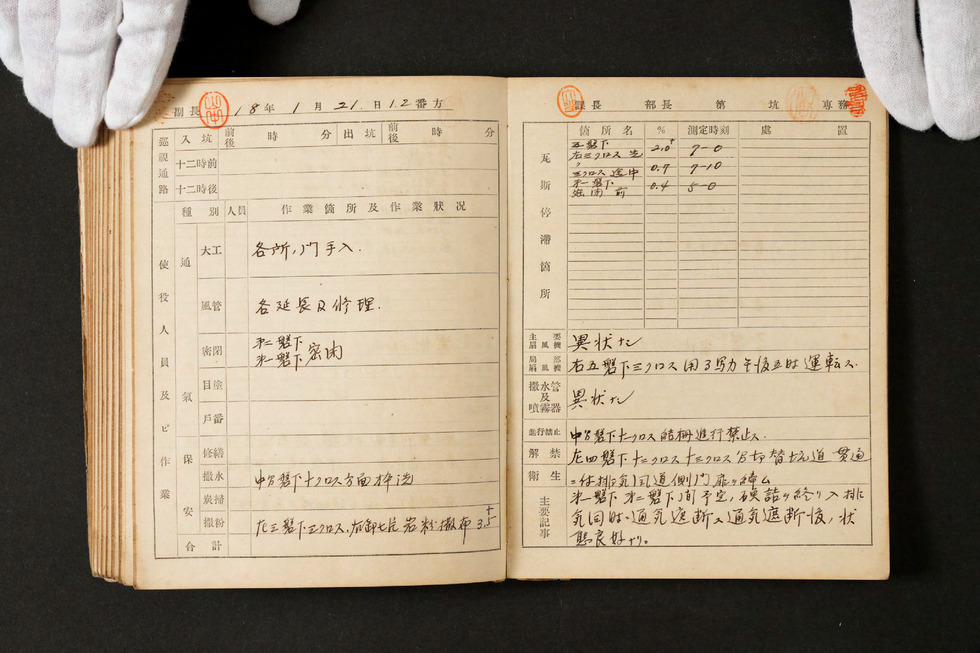 副長 18年1月21日12番方
巡視通路 入坑 前後 時 分 出坑 前後 時 分
十二時前
十二時後
使役人員及ビ作業
種別 人員 作業箇所及作業狀况
通氣
大工 各所ノ門手入.
風管 各延長及修理.
密閉 第二盤下 第一盤下 密閉
目塗
戸番
保安
修繕
撒水 中 盤下 クロス方面
炭掃
撒粉 左三盤下三クロス、 岩粉撒布 3.5
合計
課長 部長 第 坑 専務
瓦斯停滞箇所
箇所名 % 測定時刻 處置
五盤下
右三クロス 2.0 7-0
〃 三クロス 途中 0.7 7-10
第一盤下
密閉前 0.4 5-0
主要扇風機 異状ナシ
局部扇風機 右五盤下三クロス 用3馬力午後五時運転ス.
撒水管及噴霧器 異状ナシ
進行禁止 中 盤下十一クロス 進行禁止ス.
解禁 左四盤下十二クロス十三クロス 切替坑道貫通
衛生 ニ付排気 道側門扉
主要記事
第一盤下第二盤下 予定ノ 詰 終リ入排
気 通気遮断又通気遮断後ノ状
態良好ナリ。